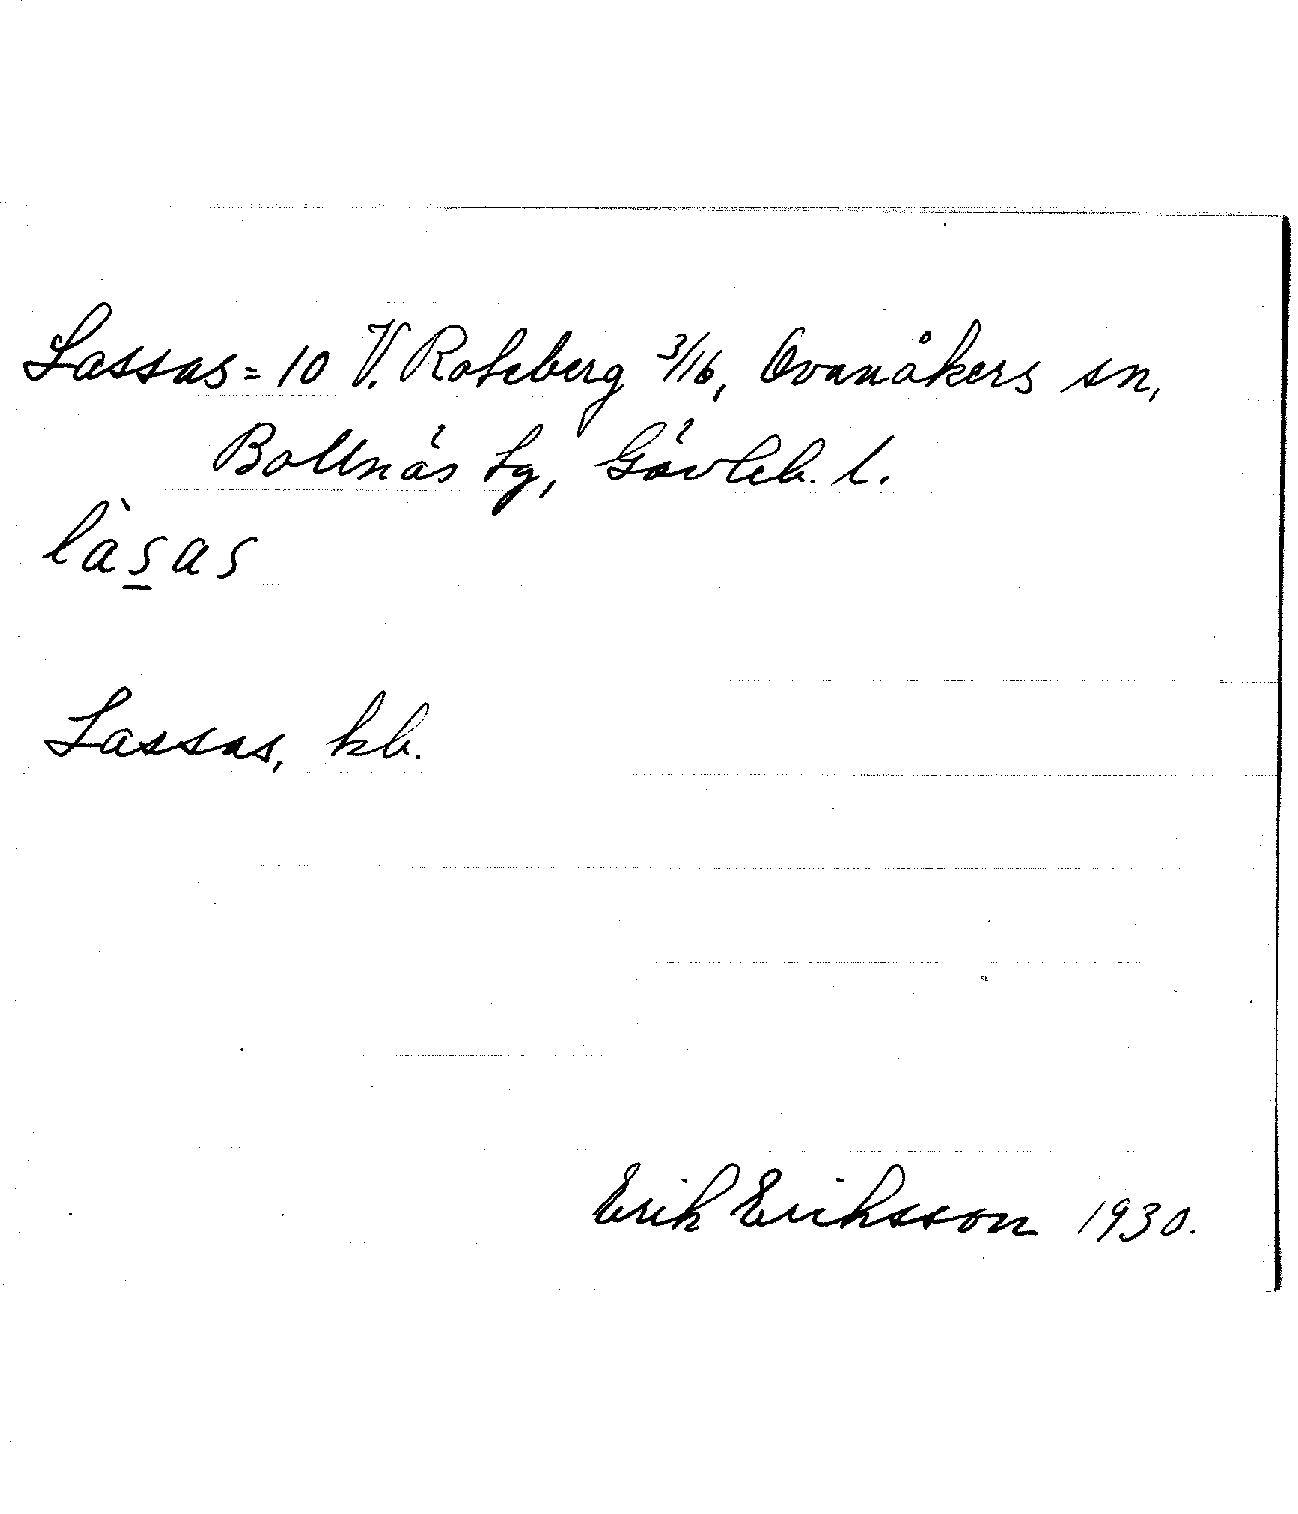 Lassas = 10 V. Roteberg 3/16, Ovanåkers sn,
Bollnäs tg, Gävleb. l.
làs̲as
Lassas, kb.
Erik Eriksson 1930.